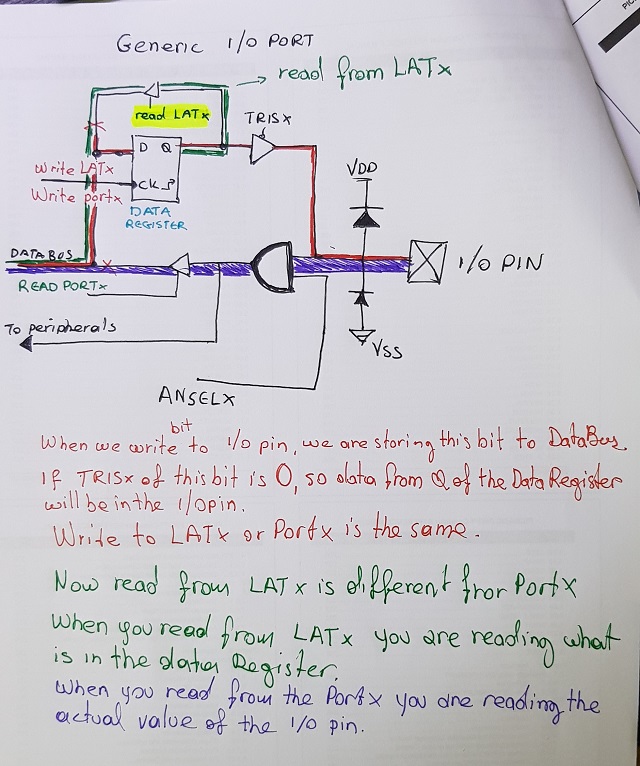 Generic I/O PORT
read from LATx
read LATx
TRISx
D Q
Write LATx
CK
Write portx
DATA
REGISTER
VDD
DATA BUS
I/O PIN
READ PORTx
To peripherals
VSS
ANSELx
bit
When we write to I/O pin, we are storing this bit to DataBus
If TRISx of this bit is 0, so data from Q of the Data Register
will be in the I/O pin.
Write to LATx or Portx is the same.
Now read from LATx is different fror PortX
When you read from LATx you are reading what
is in the data Register.
When you read from the Portx you are reading the
actual value of the I/O pin.